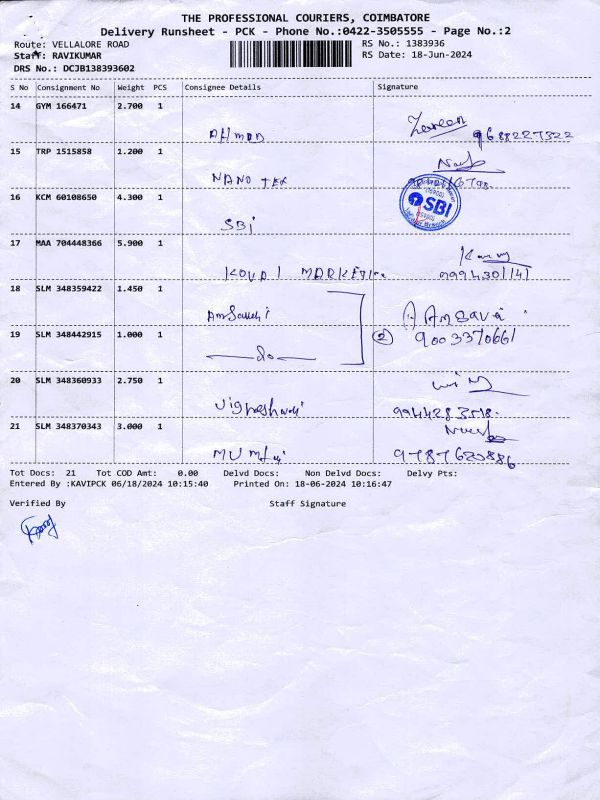 THE PROFESSIONAL COURIERS, COIMBATORE
Delivery Runsheet - PCK - Phone No.:0422-3505555 - Page No.:2
Route: VELLALORE ROAD
RS No.: 1383936
Staff: RAVIKUMAR
RS Date: 18-Jun-2024
DRS No.: DCJB138393602
S No Consignment No Weight PCS Consignee Details Signature
14 GYM 166471 2.700 1
9688227322
15 TRP 1515858 1.200 1
NANO TEX
16 KCM 60108650 4.300 1
SBI
SBI
17 MAA 704448366 5.900 1
KOVAI
18 SLM 348359422 1.450 1
19 SLM 348442915 1.000 1
do
2
9003370661
20 SLM 348360933 2.750 1
21 SLM 348370343 3.000 1
9787620886
Tot Docs: 21 Tot COD Amt: 0.00 Delvd Docs: Non Delvd Docs: Delvy Pts:
Entered By :KAVIPCK 06/18/2024 10:15:40 Printed On: 18-06-2024 10:16:47
Verified By Staff Signature